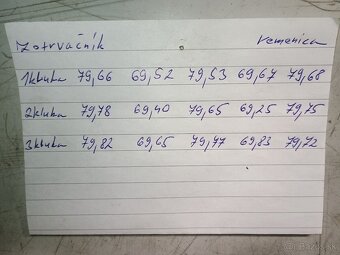 Zotrvačník remenica
1kluka 79,66 69,52 79,53 69,67 79,68
2kluka 79,78 69,40 79,65 69,25 79,75
3kluka 79,82 69,65 79,77 69,83 79,72